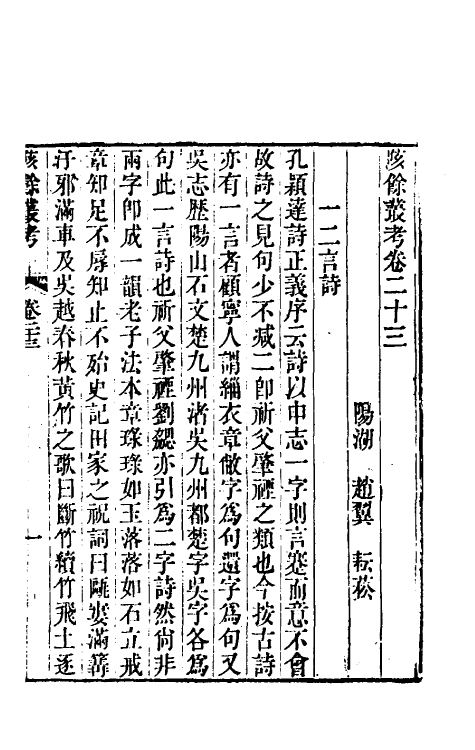 陔餘叢考卷二十三
陽湖 趙翼 耘菘
一二言詩
孔穎達詩正義序云詩以申志一字則言蹇而意不會
故詩之見句少不减二卽祈父肇禋之類也今按古詩
亦有一言者顧寧人謂緇衣章敝字爲句還字爲句又
吳志歷陽山石文楚九州渚吳九州都楚字吳字各爲
句此一言詩也祈父肇禋劉勰亦引爲二字詩然尙非
兩字卽成一韻老子法本章琭琭如玉落落如石立戒
章知足不辱知止不殆史記田家之祝詞曰甌窶滿篝
汙邪滿車及吳越春秋黃竹之歌曰斷竹續竹飛土逐
陔餘叢考 卷二十三 一